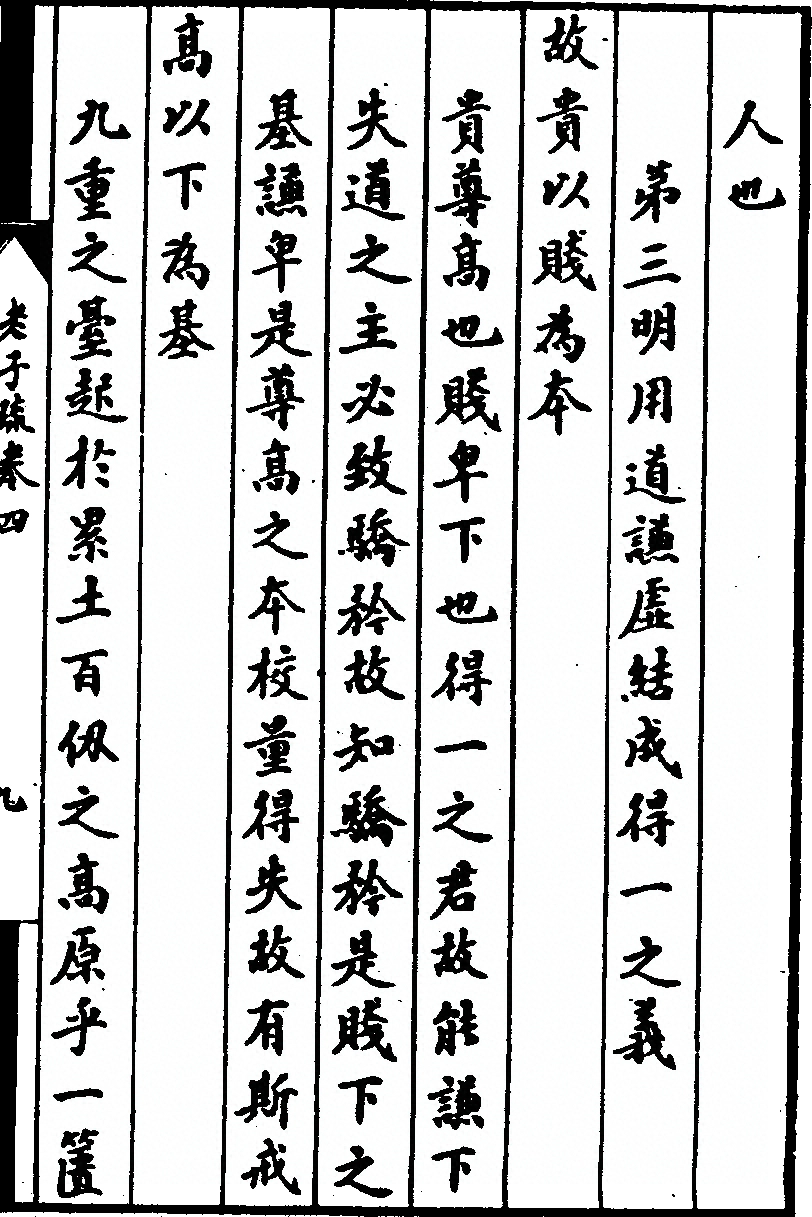 人也
第三明用道謙虛結成得一之義
故貴以賤為本
貴尊髙也賤卑下也得一之君故能謙下
失道之主必致驕矜故知驕矜是賤下之
基謙卑是尊髙之本校量得失故有斯戒
髙以下為基
九重之臺起於累土百仭之髙原乎一簣
老子疏卷四
九